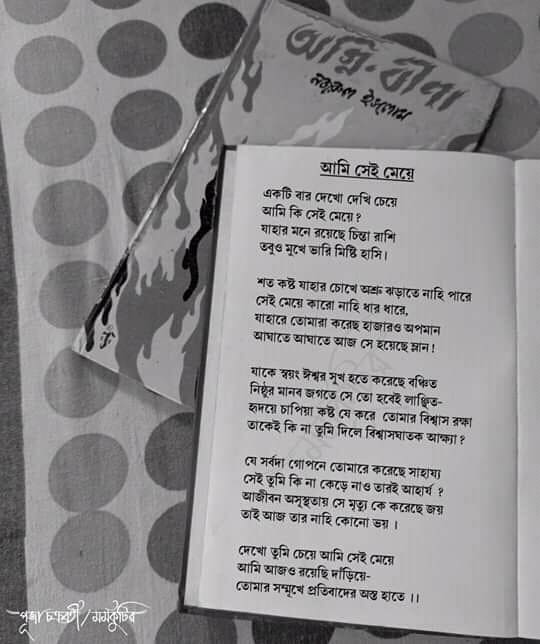 অগ্নি-বীণা
নজরুল ইসলাম
আমি সেই মেয়ে
একটি বার দেখো দেখি চেয়ে
আমি কি সেই মেয়ে ?
যাহার মনে রয়েছে চিন্তা রাশি
তবুও মুখে ভারি মিষ্টি হাসি।
শত কষ্ট যাহার চোখে অশ্রু ঝড়াতে নাহি পারে
সেই মেয়ে কারো নাহি ধার ধারে,
যাহারে তোমারা করেছ হাজারও অপমান
আঘাতে আঘাতে আজ সে হয়েছে ম্লান !
যাকে স্বয়ং ঈশ্বর সুখ হতে করেছে বঞ্চিত
নিষ্ঠুর মানব জগতে সে তো হবেই লাঞ্ছিত-
হৃদয়ে চাপিয়া কষ্ট যে করে তোমার বিশ্বাস রক্ষা
তাকেই কি না তুমি দিলে বিশ্বাসঘাতক আক্ষ্যা ?
যে সর্বদা গোপনে তোমারে করেছে সাহায্য
সেই তুমি কি না কেড়ে নাও তারই আহার্য ?
আজীবন অসুস্থতায় সে মৃত্যু কে করেছে জয়
তাই আজ তার নাহি কোনো ভয় ।
দেখো তুমি চেয়ে আমি সেই মেয়ে
আমি আজও রয়েছি দাঁড়িয়ে-
তোমার সম্মূখে প্রতিবাদের অস্ত্র হাতে ।।
পূজা চক্রবর্তী/মনকুঠির